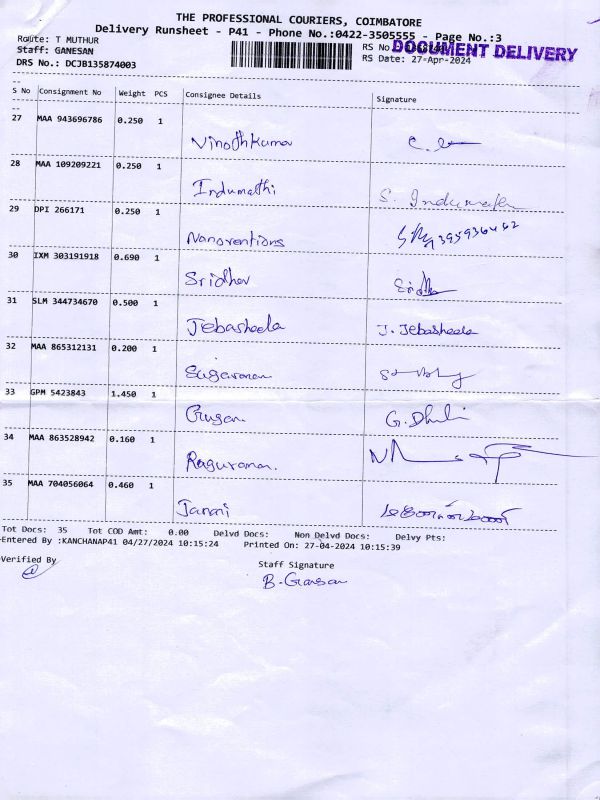 THE PROFESSIONAL COURIERS, COIMBATORE
Delivery Runsheet - P41 - Phone No.:0422-3505555 - Page No.:3
Route: T MUTHUR
RS No.
DOCUMENT DELIVERY
Staff: GANESAN
RS Date: 27-Apr-2024
DRS No.: DCJB135874003
S No Consignment No Weight PCS Consignee Details Signature
27 MAA 943696786 0.250 1
Vinothkumar
28 MAA 109209221 0.250 1
Indumathi S. Indumathi
29 DPI 266171 0.250 1
Nanoventions
30 IXM 303191918 0.690 1
Sridhar Sridhar
31 SLM 344734670 0.500 1
Jebasheela J. Jebasheela
32 MAA 865312131 0.200 1
Sugavanan
33 GPM 5423843 1.450 1
G. Dhuli
34 MAA 863528942 0.160 1
Raguraman.
35 MAA 704056064 0.460 1
Janani
Tot Docs: 35 Tot COD Amt: 0.00 Delvd Docs: Non Delvd Docs: Delvy Pts:
Entered By :KANCHANAP41 04/27/2024 10:15:24 Printed On: 27-04-2024 10:15:39
Verified By
Staff Signature
B. Ganesan